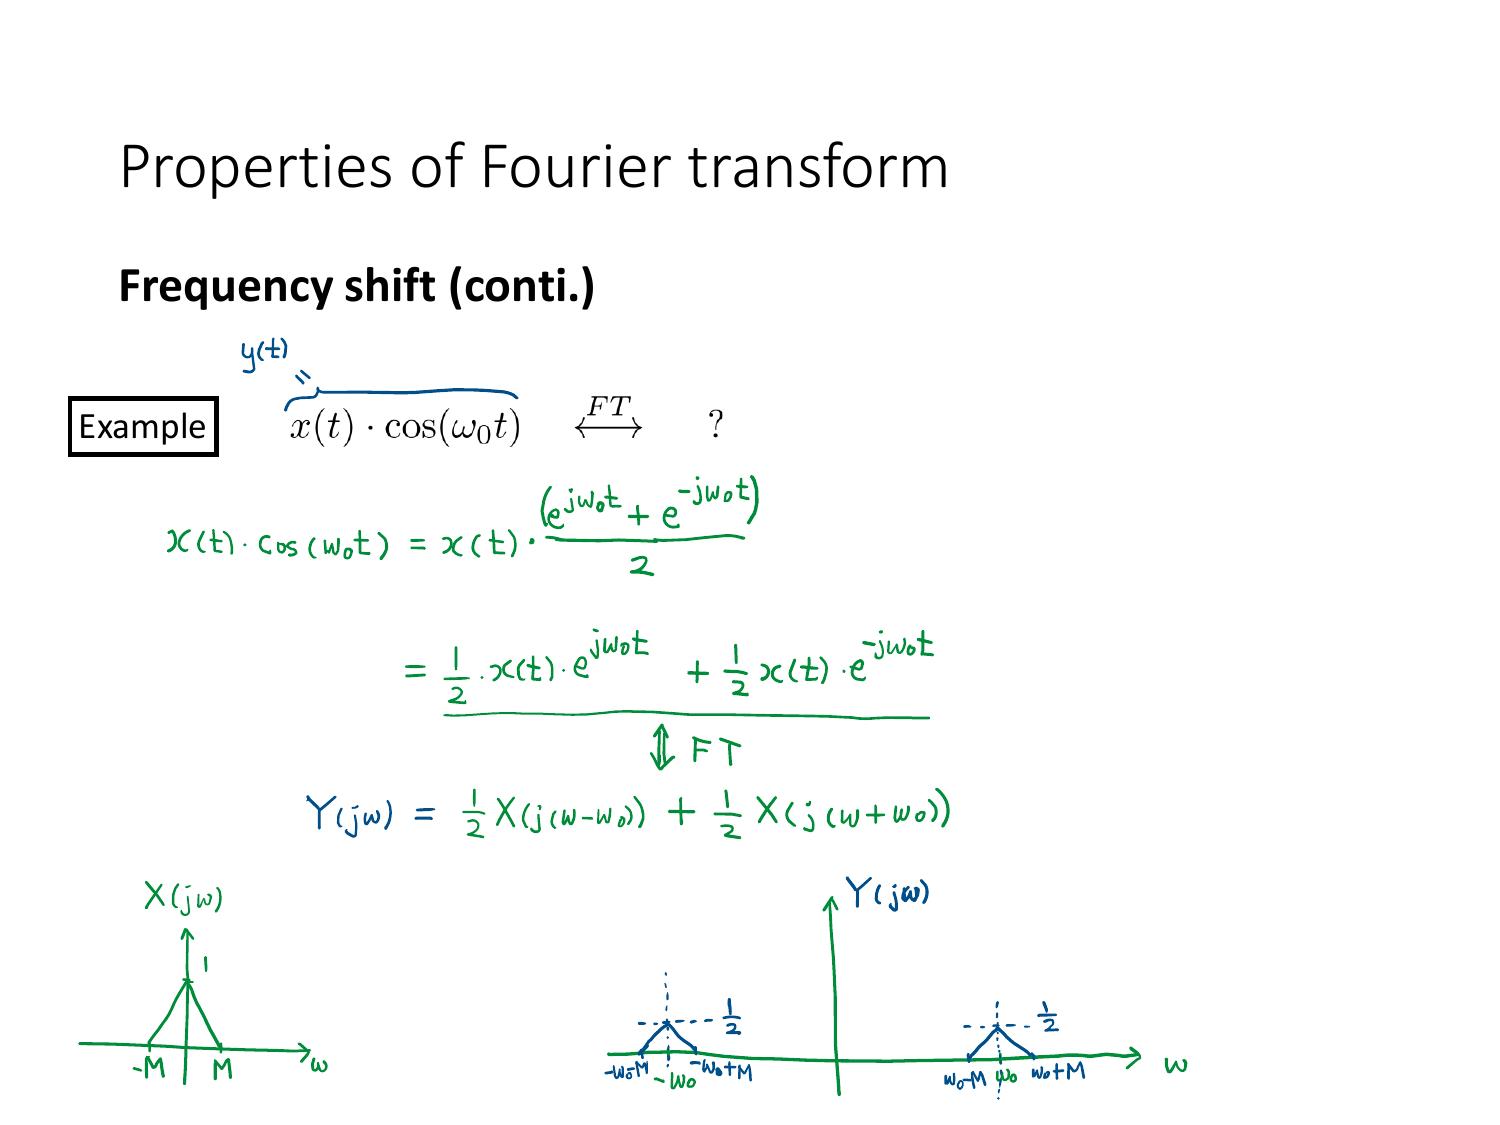 Properties of Fourier transform
Frequency shift (conti.)
y(t) =
Example x(t) · cos(ω₀t) ⟷ FT ?
x(t) · cos(ω₀t) = x(t) · (e^{jω₀t} + e^{-jω₀t}) / 2
= 1/2 · x(t) · e^{jω₀t} + 1/2 x(t) · e^{-jω₀t}
⇕ FT
Y(jω) = 1/2 X(j(ω-ω₀)) + 1/2 X(j(ω+ω₀))
X(jω)
1
-M M ω
Y(jω)
1/2 1/2
-ω₀-M -ω₀ -ω₀+M ω₀-M ω₀ ω₀+M ω